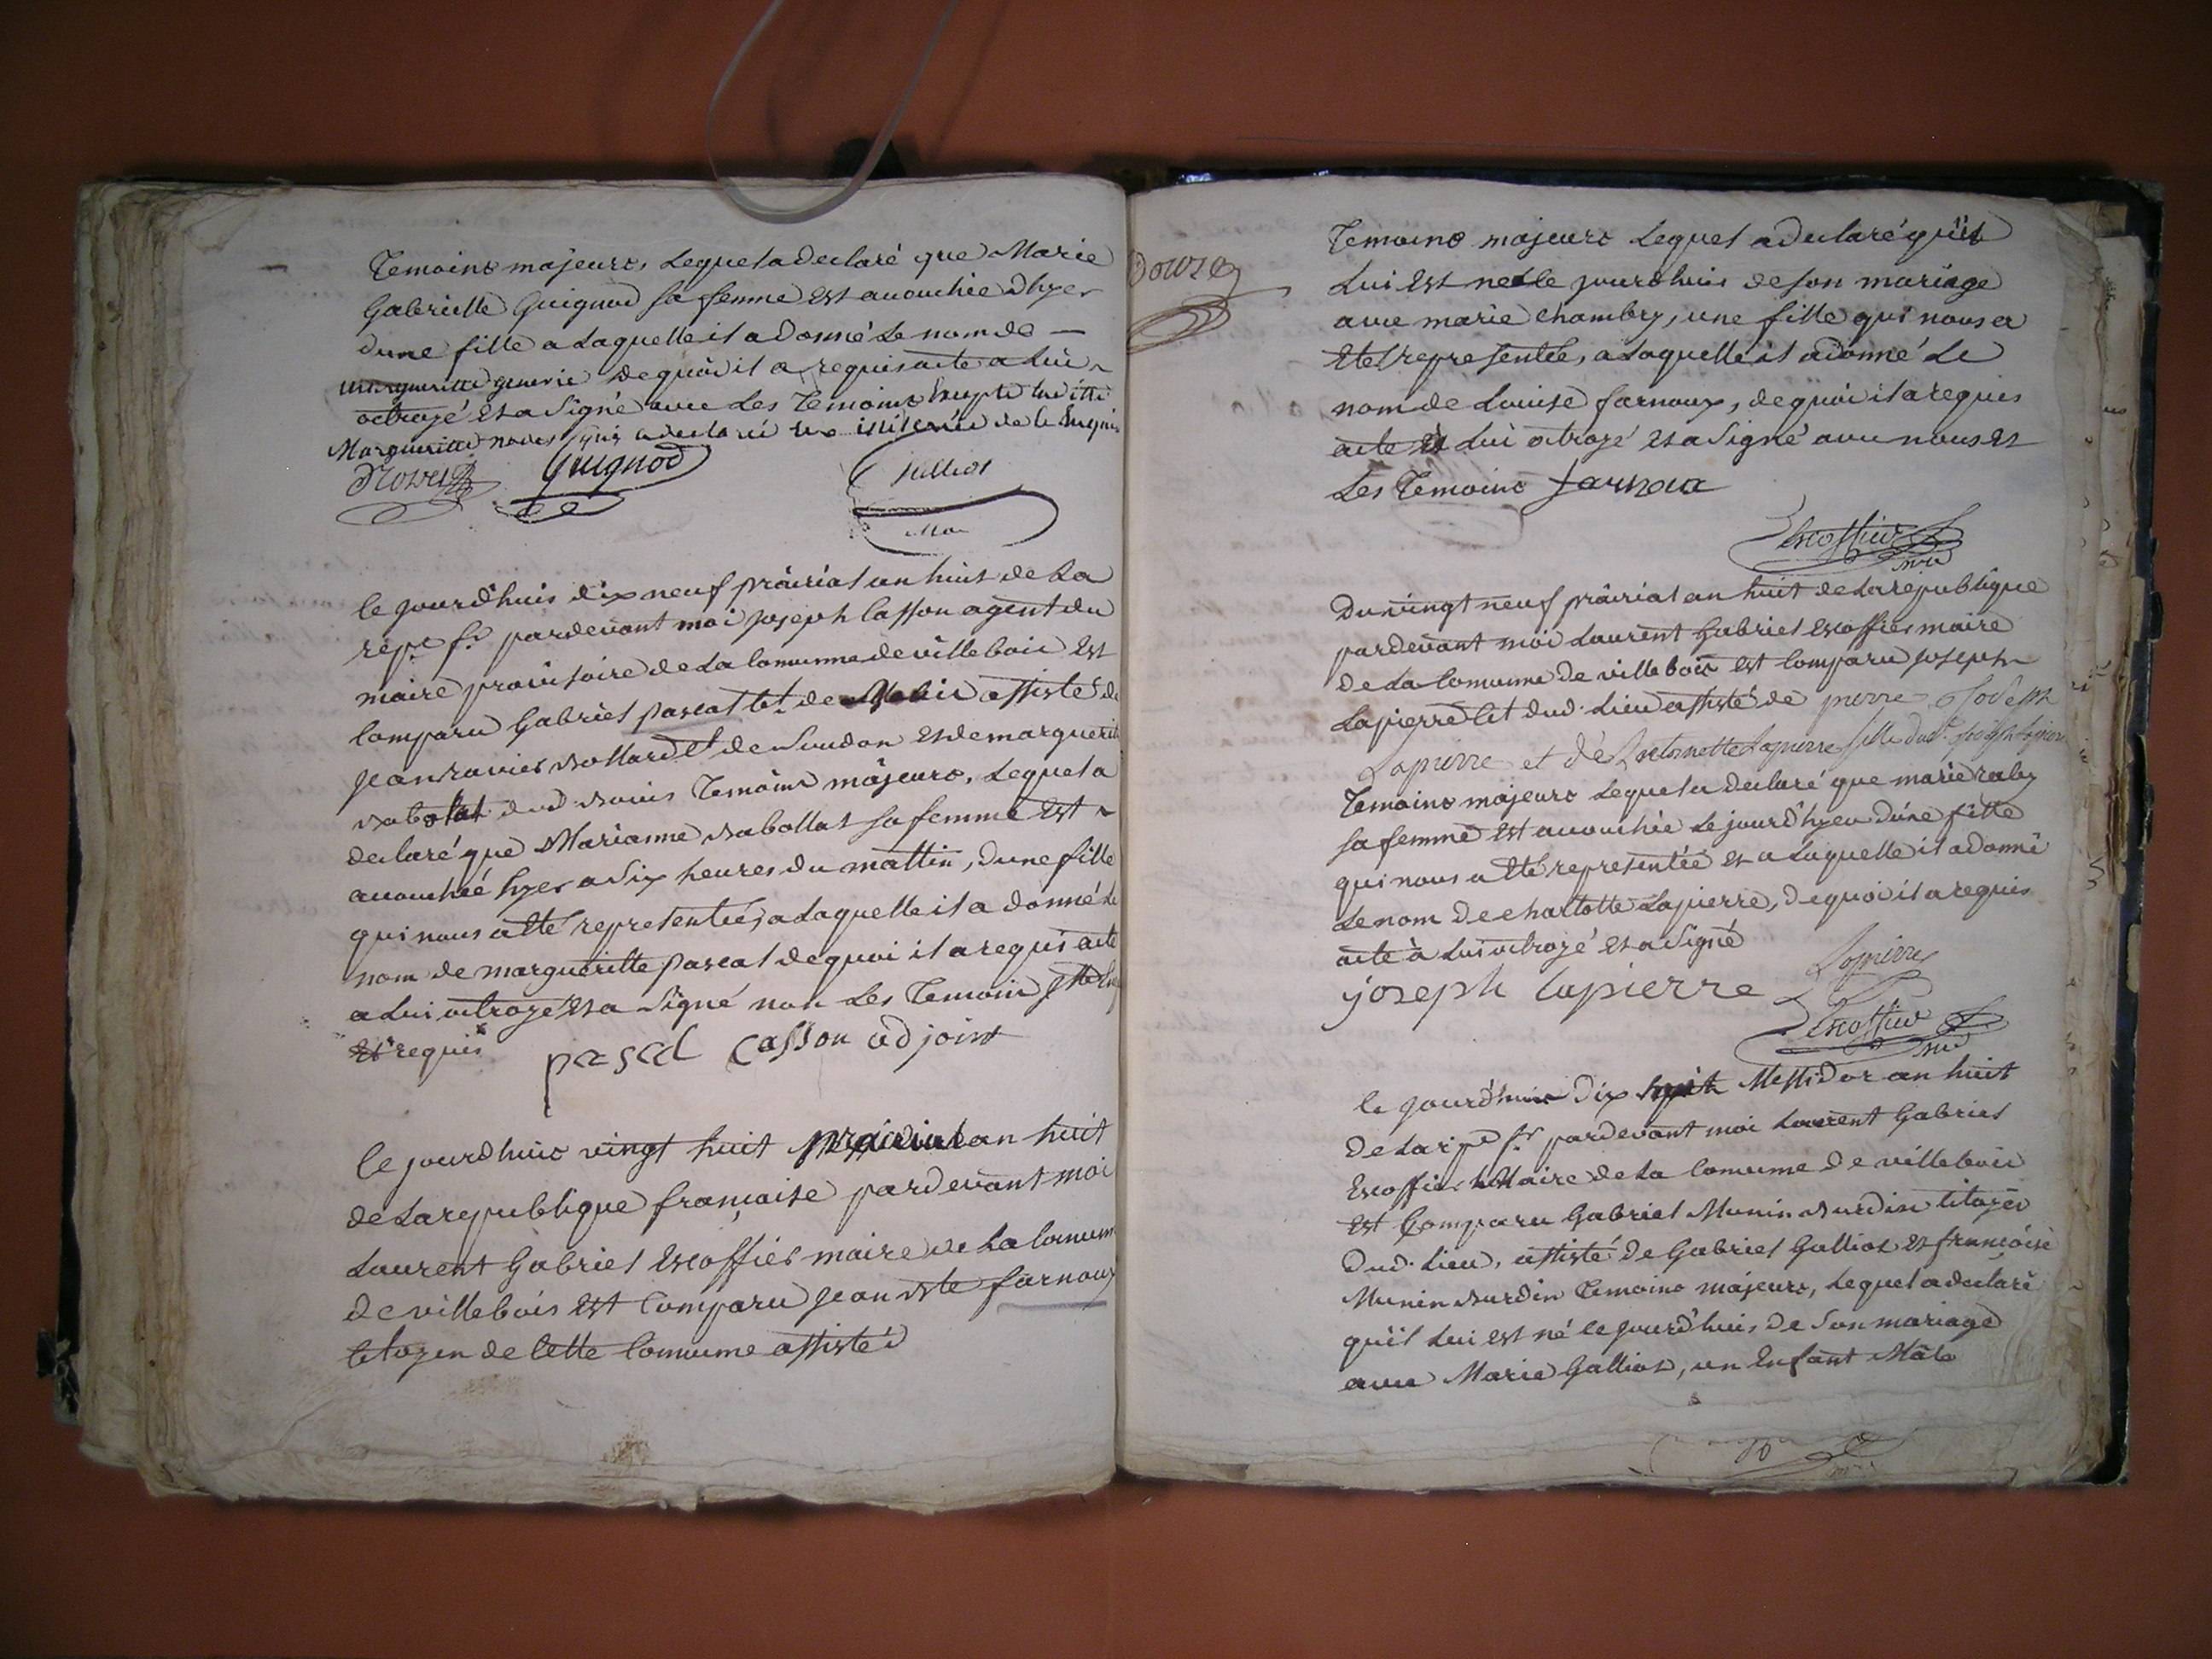 Temoins majeurs, Lequel a declaré que Marie
Gabrielle Guignod sa femme est accouchée d'hyer
dune fille a laquelle il a donné Le nom de —
de quoi il a requis acte a Lui
octroyé et a signé avec Les Temoins Excepté laditte
Margueritte qui a declaré de le requis
Guignod
Julliot
le jourd'huis dix neuf prairial an huit de La
rep.e f.e pardevant moi joseph Casson agent du
maire provisoire de La Commune de villebois Est
Comparu Gabriel pascal Cit. de assisté de
jean de Soudon et de marguerite
dud. Temoins majeurs, Lequel a
declaré que Marianne sa femme Est
accouchée hyer a Six heures du mattin, dune fille
qui nous a Eté representée, a Laquelle il a donné Le
nom de margueritte pascal de quoi il a requis acte
a Lui octroyé et a Signé non Les Temoins
Et requis
pascal Casson adjoint
le jourd'huis vingt huit prairial an huit
de La republique françoise pardevant moi
Laurent Gabriel Escoffier maire de La Comum
de villebois Est Comparu jean Bte farnoux
Citoyen de Cette Comume assisté d
Douze
Temoins majeurs Lequel a declaré qu'il
Lui Est né Le jourdhuis de son mariage
avec marie Chambry, une fille qui nous a
Eté representée, a Laquelle il a donné Le
nom de Louise farnoux, de quoi il a requis
acte Lui octroyé et a Signé avec nous et
Les Temoins farnoux
Escoffier
mre
Du vingt neuf prairial an huit de La republique
pardevant moi Laurent Gabriel Escoffier maire
de La Comume de villebois est Comparu joseph
Lapierre Cit dud. Lieu assisté de pierre joseph
Lapierre et de Antoinette Lapierre fille dud. joseph Lapierre
Temoins majeurs Lequel a declaré que marie
sa femme est accouchée Le jourd'hyer dune fille
qui nous a Eté representée et a Laquelle il a donné
Le nom de charlotte Lapierre, de quoi il a requis
acte à Lui octroyé et a Signé
joseph lapierre
Lapierre
Escoffier
mre
le jourd'huis dix Messidor an huit
de La rep.e f.e pardevant moi Laurent Gabriel
Escoffier Maire de La Comume de villebois
Est Comparu Gabriel Munin Citoyen
dud. Lieu, assisté de Gabriel Galliot et françoise
Munin Temoins majeurs, Lequel a declaré
qu'il Lui est né le jourd'huis de Son mariage
avec Marie Galliot, un Enfant Mâle